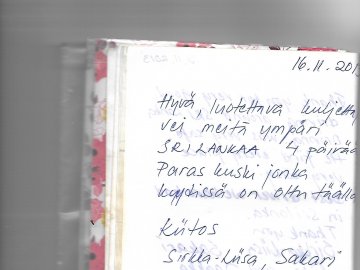 16.11.201
Hyvä, luotettava kuljetta
vei meitä ympäri
SRI LANKAA 4 päivää
Paras kuski jonka
kyydissä on oltu täällä
Kiitos
Sirkka-Liisa, Sakari